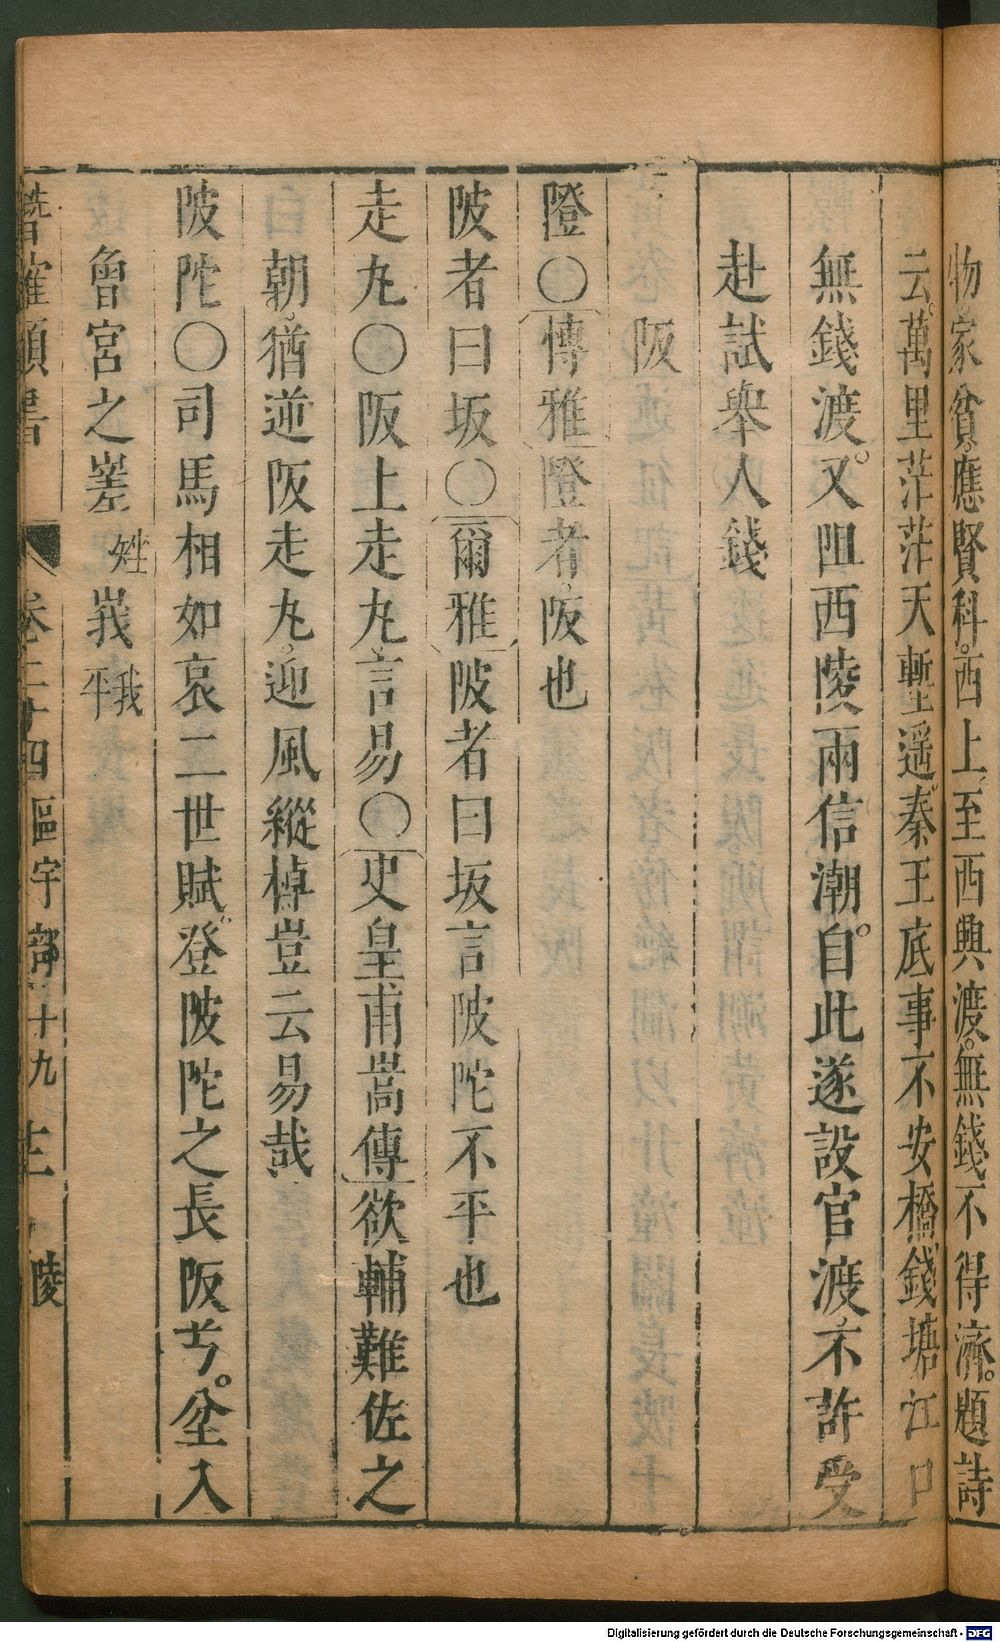 物家貧。應賢科。西上。至西興渡。無錢不得濟。題詩
云。萬里茫茫天塹遥。秦王底事不安橋。錢塘江口
無錢渡。又阻西陵兩信潮。自此遂設官渡。不許受
赴試舉人錢
阪
隥〇博雅隥者。阪也
陂者曰坂〇爾雅陂者曰坂言陂陀不平也
走丸〇阪上走丸言易〇史皇甫嵩傳欲輔難佐之
朝。猶逆阪走丸。迎風縱棹豈云易哉
陂陀〇司馬相如哀二世賦。登陂陀之長阪兮。坌入
曾宮之嵳𡸳峩我平
卷二十四 區宇部 十九 陵
Digitalisierung gefördert durch die Deutsche Forschungsgemeinschaft - DFG